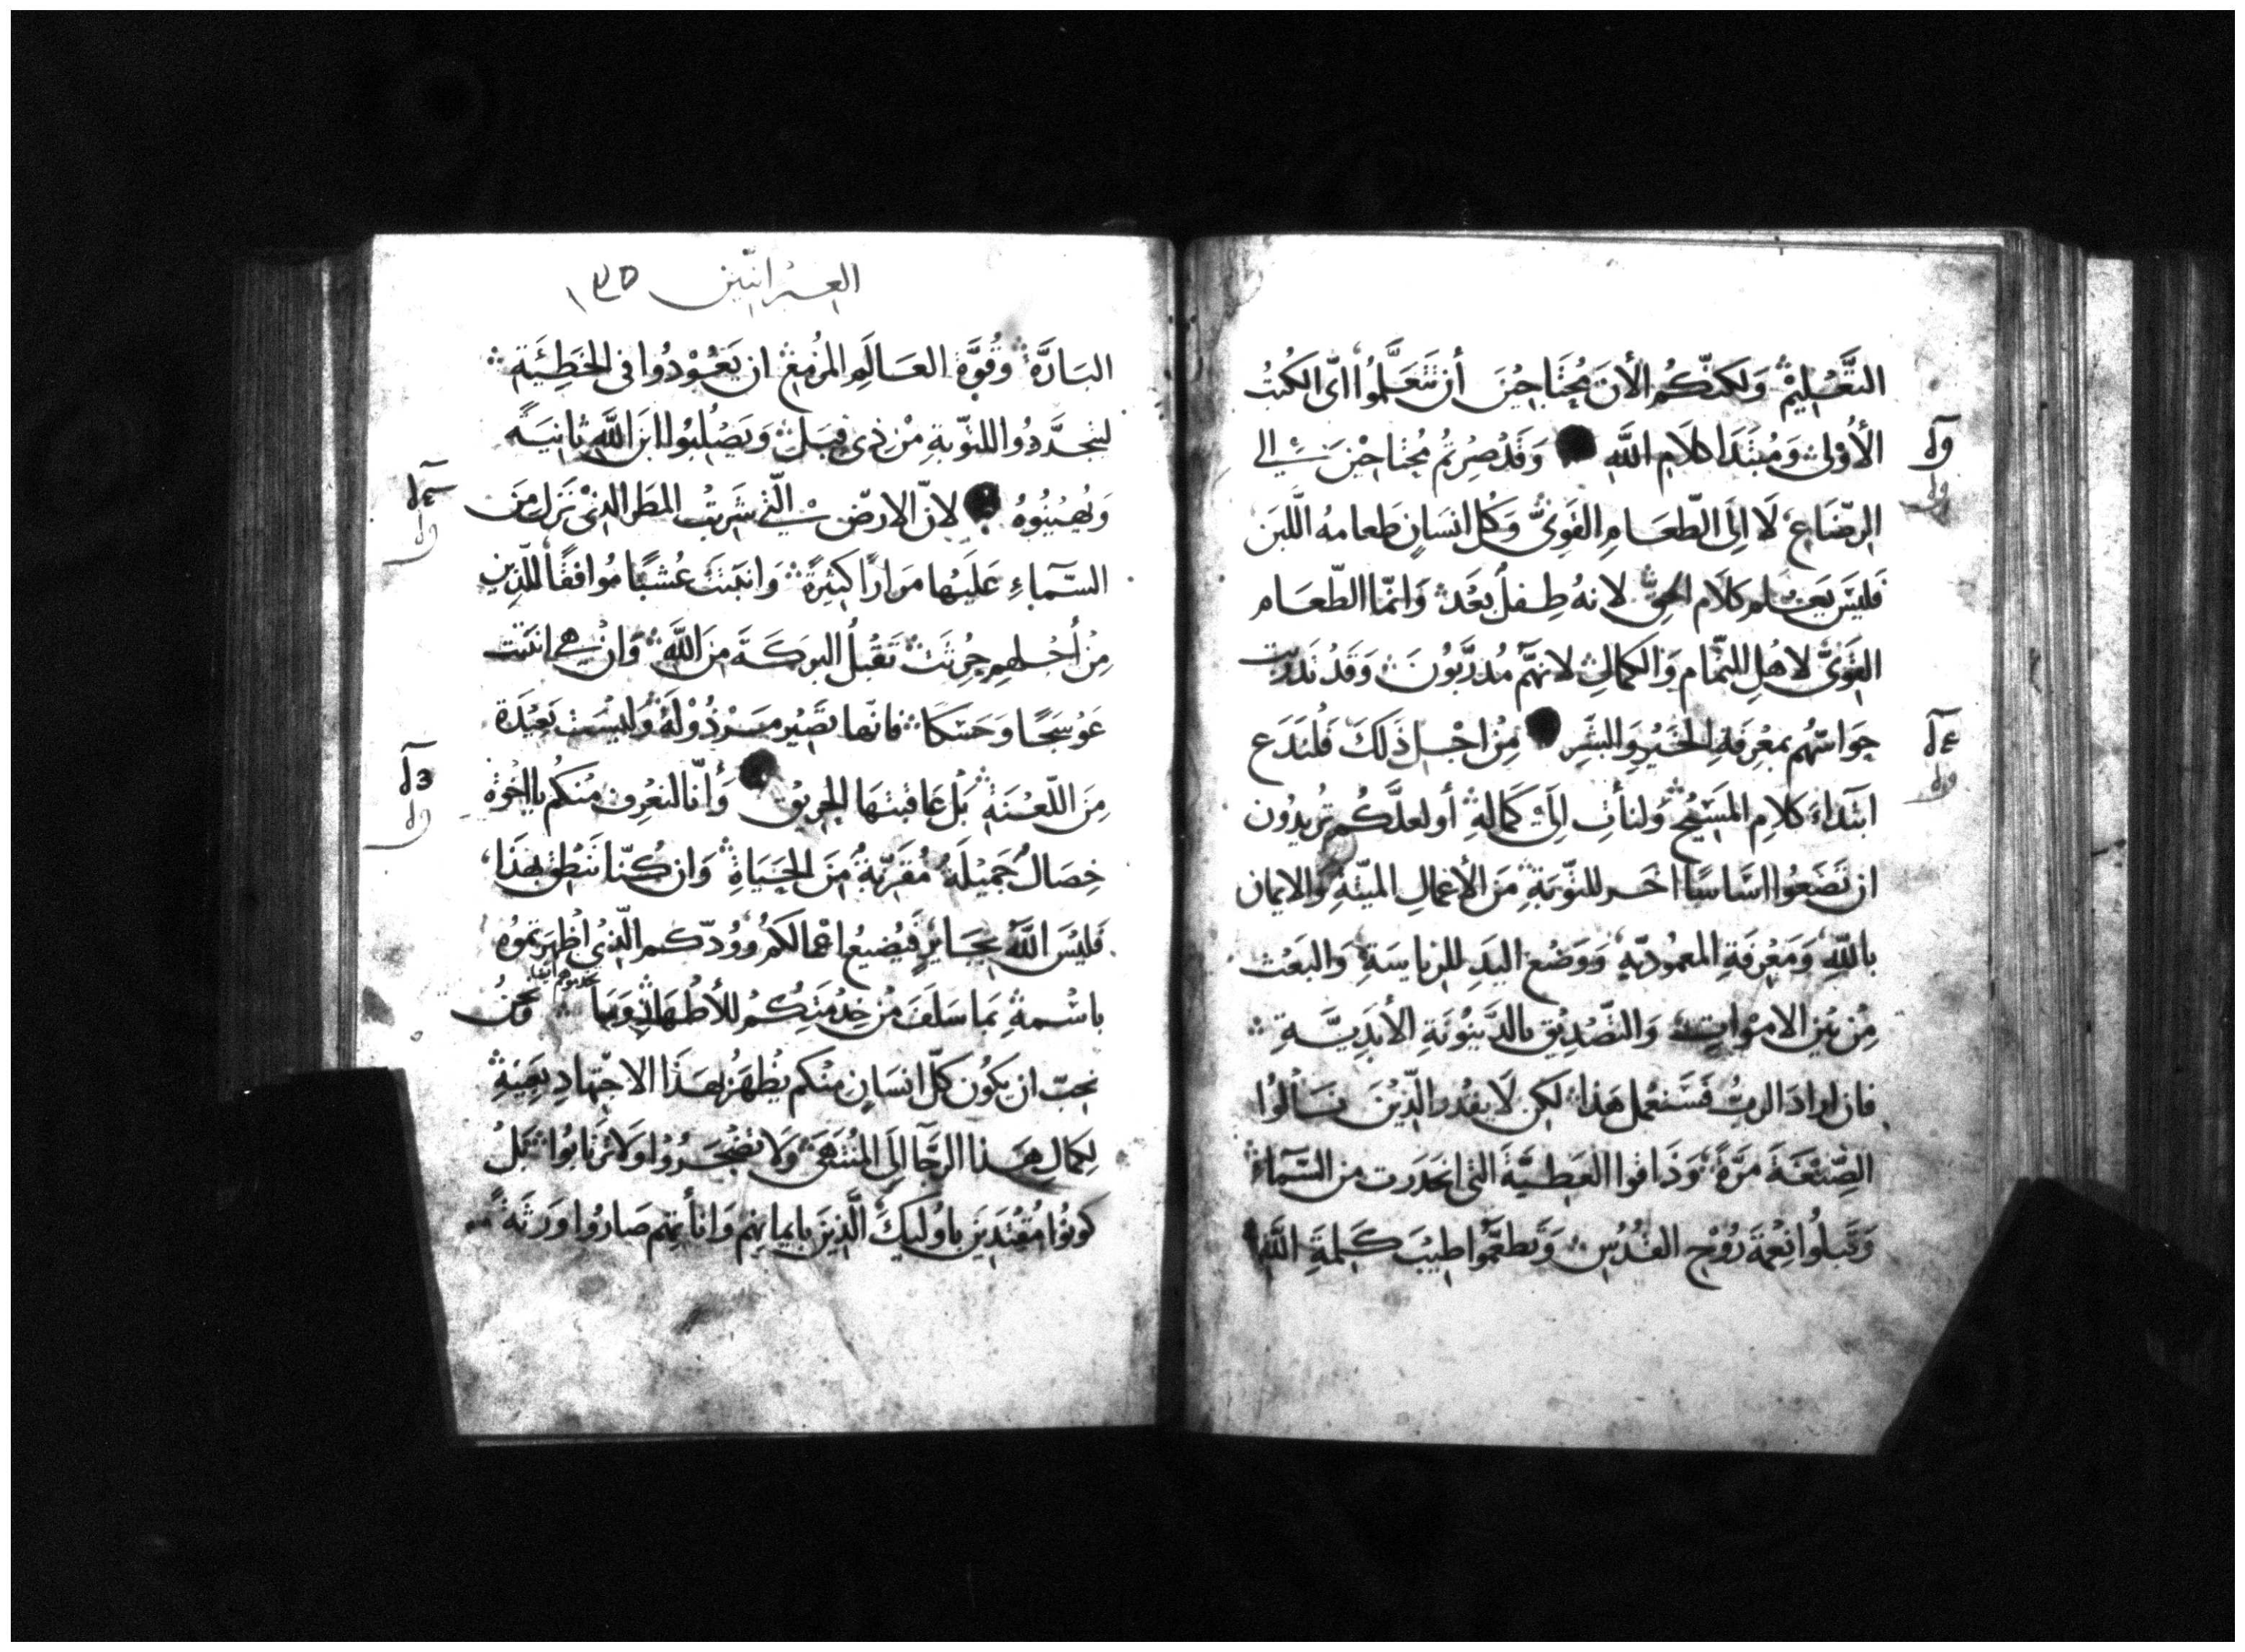 التَّعْليِمْ وَلكنّكُم الأنَ مُحْتَاجِيْنَ أن تَتَعَلَّمُوا اىّ الكُتبُ
الأُوْلىَ وَمُبْتَدَا كلَامِ اللَّهِ وَقَدْ صِرْتمُ مُحْتاجيْنَ الي
الرضَاعِ لَا الِىَ الطّعَامِ القَوِىّ وَكُل انسَانٍ طَعامهُ اللَّبَن
فَليَسَ يَعْلم كلَام الحقِّ لانهُ طِفلُ بَعْدَ وَانمّا الطّعَام
القَوىُّ لاهْلِ التّمام وَالكمَالِ لانهَّم مُدرَّبُونَ وَقَدْ تدرّبت
حَواسّهُم بمعْرِفَةِ الخَيْرِ وَالشّرِ مِنْ اجْلِ ذَلكَ فَلْندَع
ابتدَاءَ كلَامِ المَسَيْحِ وَلنأتِ الىَ كَمَالهِ أو لعلَّكُم تُريدُون
ان تَضَعُوا اسَّاسًا اخَر للتّوبَةِ منَ الأعْمالِ الميّتةِ وَالايمان
باللَّهِ وَمَعْرِفَةِ المعْمُوديّهِ وَوَضْع اليَدِ للرياسَةِ وَالبَعْث
مِنْ بَيْنِ الامْوَاتِ وَالتّصْدِيْق بالدَّيْنُونَةِ الأبَديَّةِ
فان ارادَ الربُّ فَسَنعْمل هَذا لكِن لَا يقْدر الّذِيْنَ نَالُوا
الصّبْغَةَ مَرَّةً وَذَاقوا العَطيَّةَ التى انحدَرت من السَّمَاءِ
وَقَبلُوا نِعْمَة رُوْحِ القُدُسِ وَتطعَّمُوا طيْبَ كَلِمَةِ اللَّهِ
العبرانيّين
البَارَّة وَقُوَّة العَالَمِ المُزْمِعْ ان يَعُوْدُوا فى الخَطِئَةِ
ليتجدَّدُوا للتوّبةِ مِنْ ذى قبلْ وَيَصْلِبُوا ابنَ اللَّهِ ثانيَةً
وَيُهِيْنُوهُ لانّ الارضَ الّتى شَربتْ المطَر الذىْ نَزلَ منَ
السَّمآءِ عَليَهْا مرَارًا كثِيْرَةً وَانبَتت عُشْبًا مُوافقًا للّذِين
مِنْ أجْلهِم حُرِثَتْ تَقْبلُ البركَةَ منَ اللَّهِ وَانْ هى انبتت
عَوْسَجًا وَحَسَكًا فانّها تصَيْر مَرْذُوْلَةً وَليْسَت بَعيْدَة
مِنَ اللّعْنَةِ بَلْ عَاقبتهَا الحريق وَأنّا لنعْرِف منكُم يا اخْوة
خِصَالُ جَميْلَةُ مُقرّبَةُ مَنَ الحَيَاةِ وَان كُنّا نَنطق بهَذا
فَليْسَ اللَّهُ بجَايرٍ فَيُضيعُ اعْمالكمُ وَوُدّكم الّذىْ اظْهَرتموُه
باسْمهِ بمَا سَلَفَ مِنْ خِدْمَتِكُمْ للأطْهَارِ وَبمَا تخدموهم ايضا وَنحنُ
نحبّ ان يكُون كلّ انسَانٍ منْكم يظْهر هَذَا الاجتهادِ بعَينِهِ
لكمالِ هَذا الرجَّا الَى المُنتَهَى وَلَا تضْجَرُوْا وَلَا تَرْتابُوا بَلْ
كونُوْا مُقْتَديَن باوُليكَ الّذينَ بايمانِهم وَانأتِهم صَارُوا وَرثَة